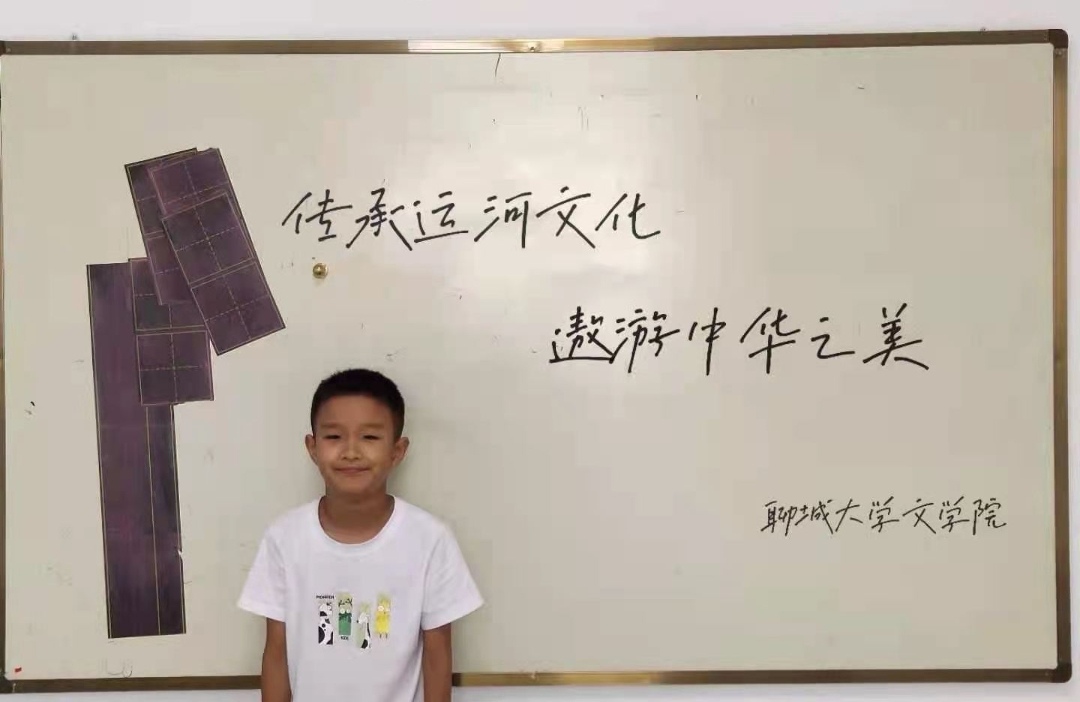 传承运河文化
遨游中华之美
聊城大学文学院